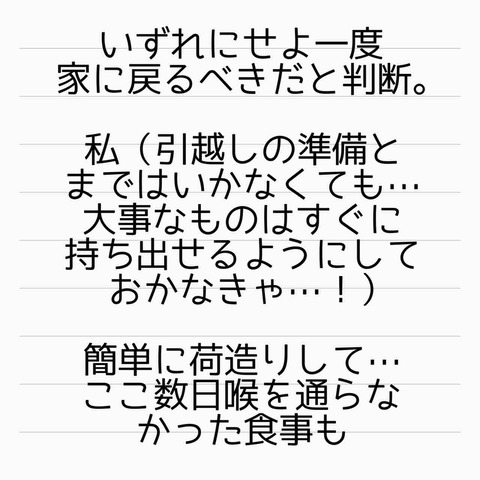 いずれにせよ一度
家に戻るべきだと判断。
私（引越しの準備と
まではいかなくても…
大事なものはすぐに
持ち出せるようにして
おかなきゃ…！）
簡単に荷造りして…
ここ数日喉を通らな
かった食事も